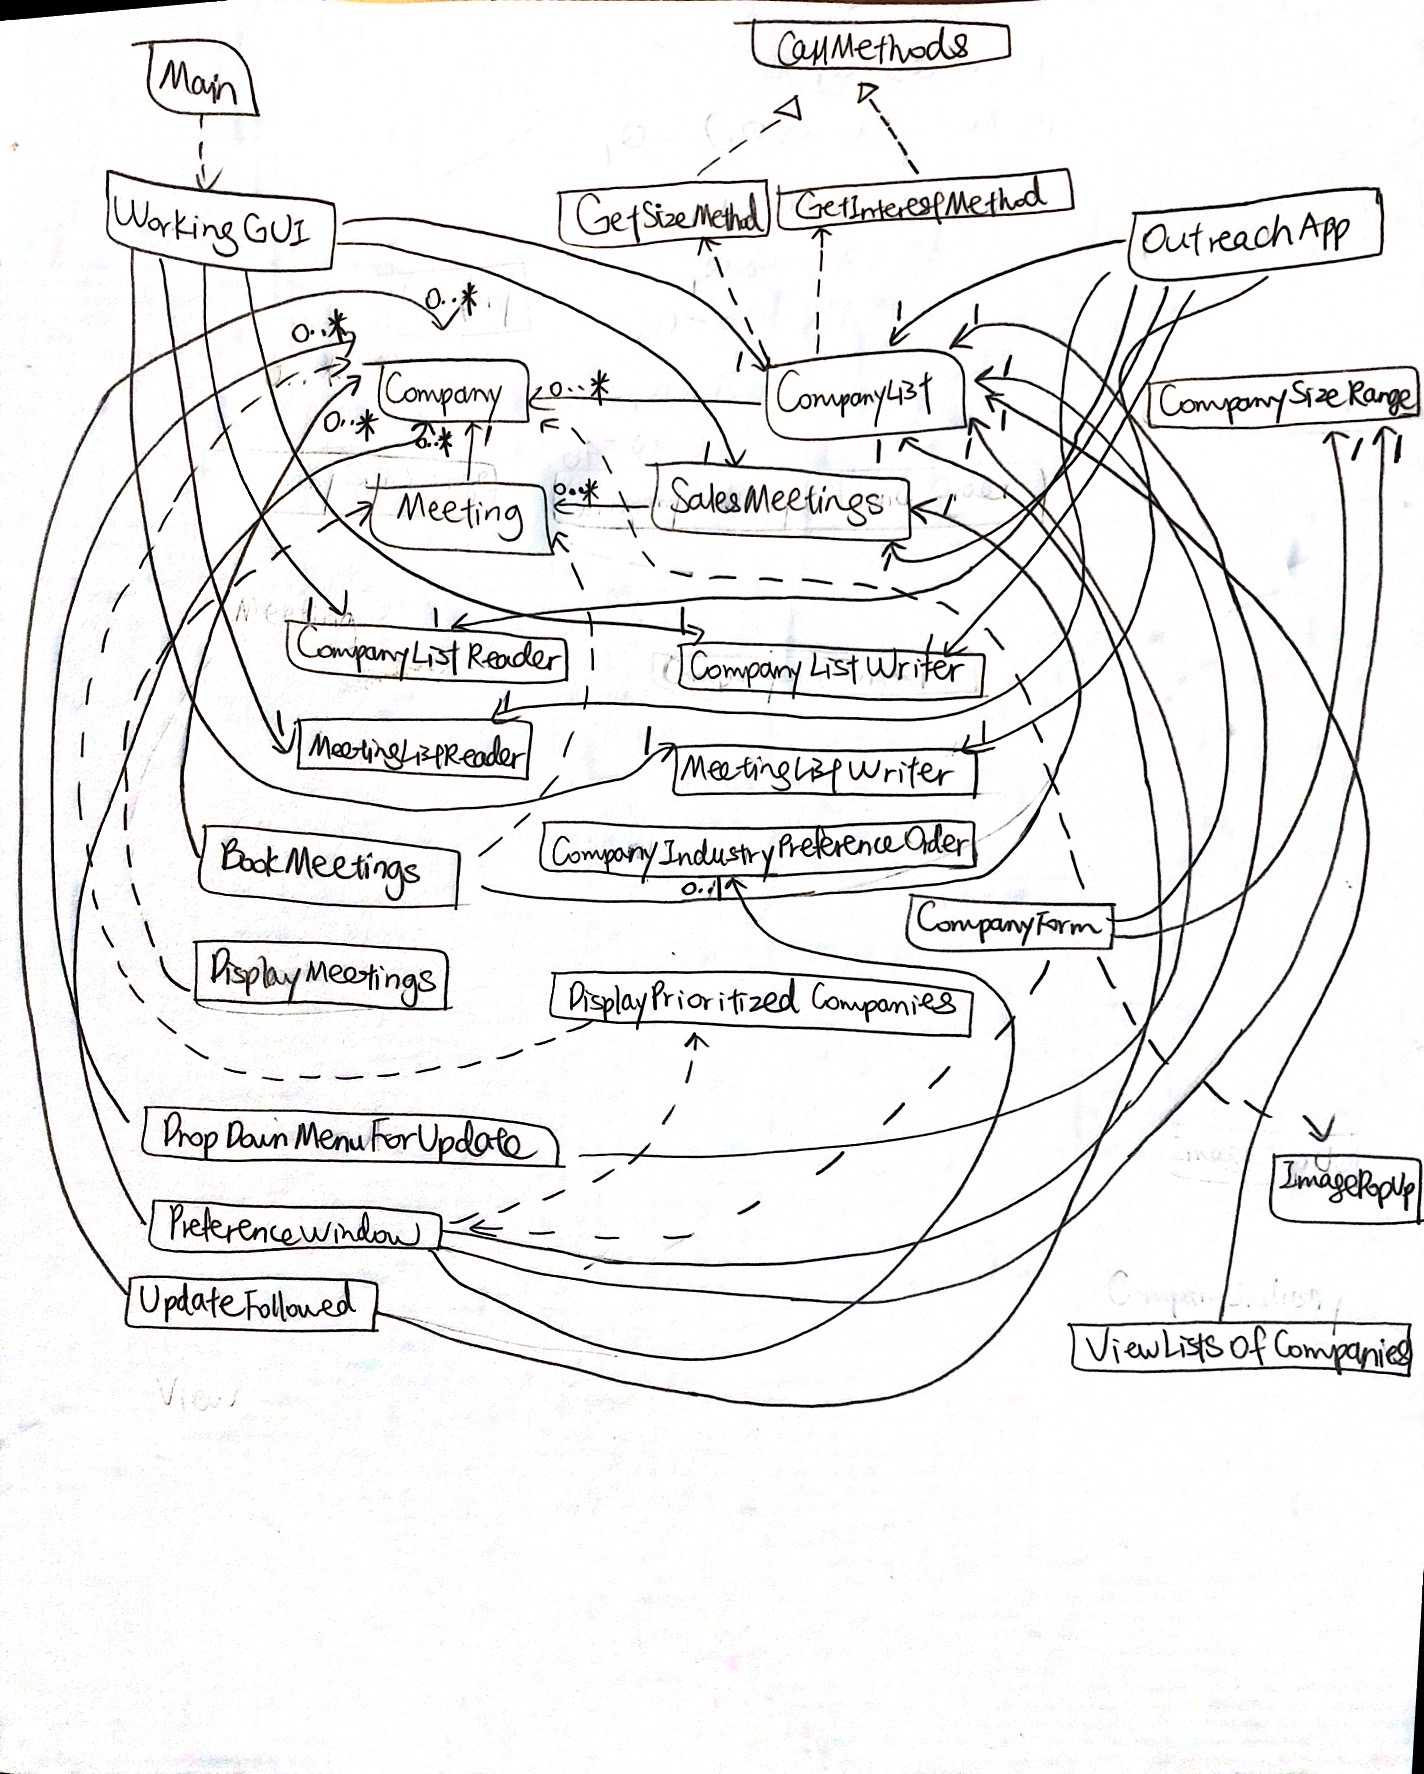 CallMethods
Main
WorkingGUI
GetSizeMethod
GetInterestMethod
OutreachApp
0..*
0..*
1
1
1
Company
0..*
CompanyList
1
CompanySizeRange
0..*
0..*
1
1
1
1
1
1
Meeting
0..*
SalesMeetings
1
1
1
1
CompanyListReader
1
CompanyListWriter
1
1
1
MeetingListReader
1
MeetingListWriter
1
BookMeetings
CompanyIndustryPreferenceOrder
0..1
CompanyForm
DisplayMeetings
DisplayPrioritized Companies
DropDownMenuForUpdate
ImagePopUp
PreferenceWindow
UpdateFollowed
ViewListsOfCompanies
View